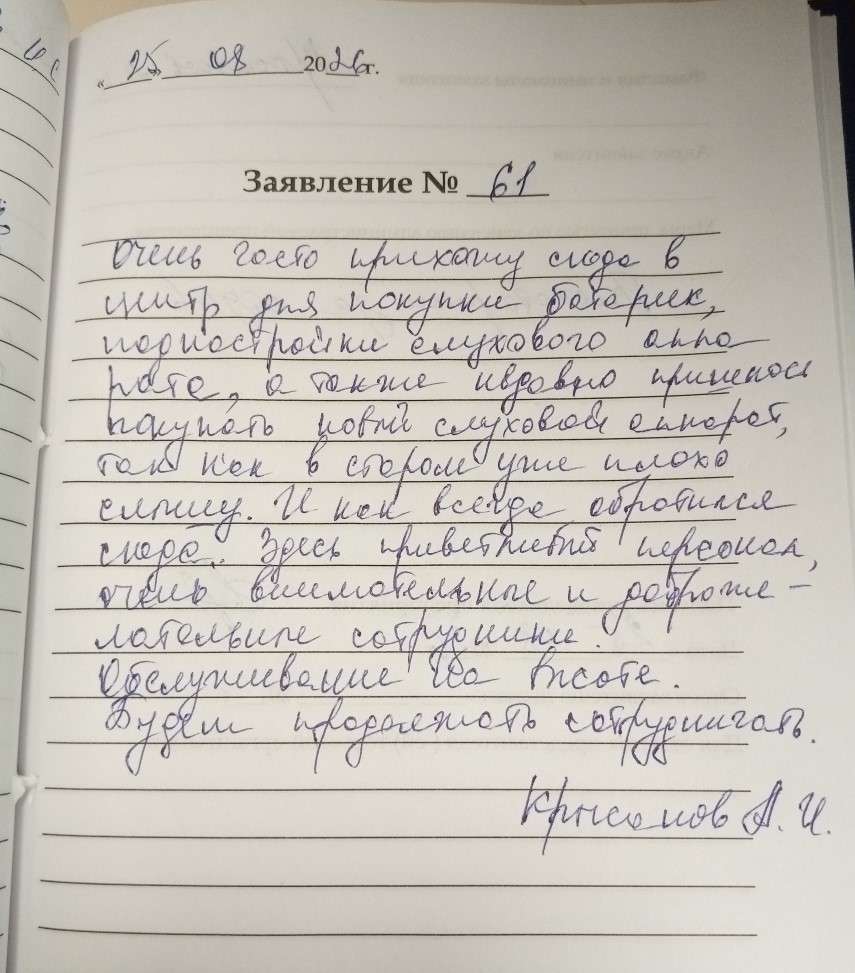 « 25 » 08 2026 г.
Заявление № 61
Очень часто прихожу сюда в
центр для покупки батареек,
поднастройки слухового аппа
рата, а также недавно пришлось
покупать новый слуховой аппарат,
так как в старом уже плохо
слышу. И как всегда обратился
сюда. Здесь приветливый персонал,
очень внимательные и доброже-
лательные сотрудники.
Обслуживание на высоте.
Будем продолжать сотрудничать.
Крысанов А. И.